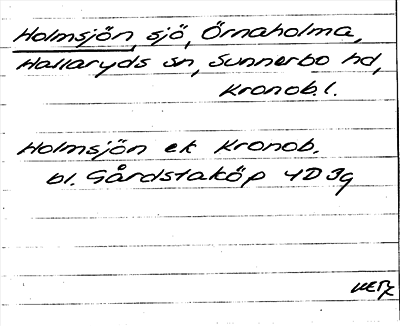 Holmsjön, sjö, Örnaholma,
Hallaryds sn, Sunnerbo hd,
Kronob. l.
Holmsjön ek Kronob.
bl. Gårdstaköp 4D 3g